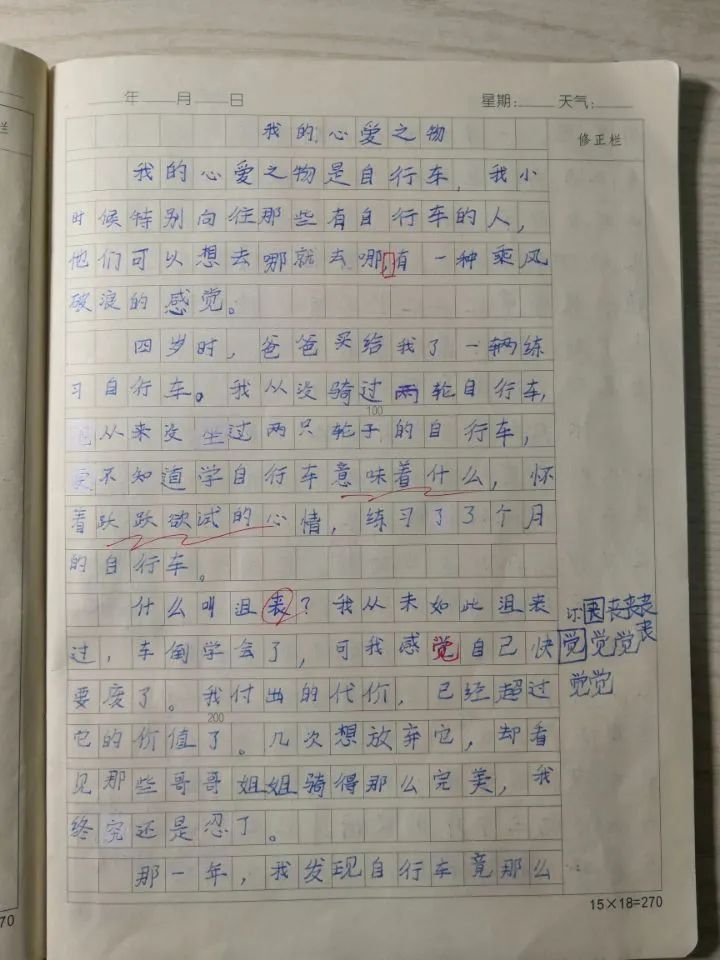 年 月 日 星期: 天气:
我的心爱之物 修正栏
我的心爱之物是自行车，我小
时候特别向往那些有自行车的人，
他们可以想去哪就去哪,有一种乘风
破浪的感觉。
四岁时，爸爸买给我了一辆练
习自行车。我从没骑过两轮自行车,
100
从来没坐过两只轮子的自行车，
更不知道学自行车意味着什么，怀
着跃跃欲试的心情，练习了3个月
的自行车。
什么叫沮丧？我从未如此沮丧
过，车倒学会了，可我感觉自己快
要废了。我付出的代价，已经超过
200
它的价值了。几次想放弃它，却看
见那些哥哥姐姐骑得那么完美，我
终究还是忍了。
那一年，我发现自行车竟那么
丧丧丧丧
觉觉觉丧
觉觉
15×18=270
70
栏